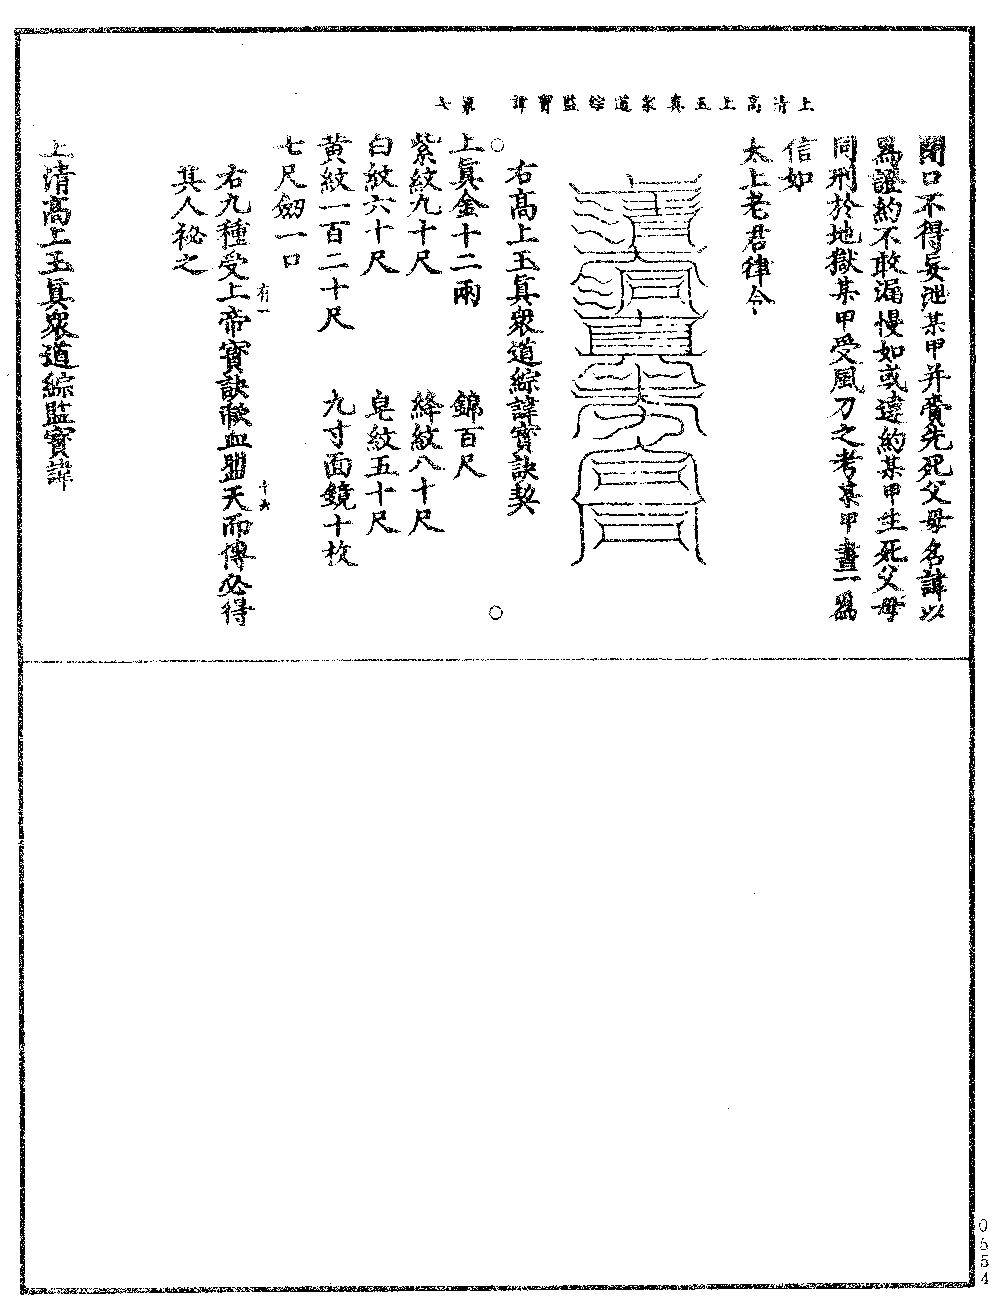 上清高上玉真衆道綜監寶諱 第七
閉口不得妄泄某甲并賫先死父母名諱以
為證約不敢漏慢如或違約某甲生死父母
同刑於地獄某甲受風刀之考某甲畫一為
信如
太上老君律令
右高上玉真衆道綜諱寶訣契
上真金十二兩 錦百尺
紫紋九十尺 絳紋八十尺
白紋六十尺 皂紋五十尺
黃紋一百二十尺 九寸面鏡十枚
七尺劒一口
有一 十六
右九種受上帝寶訣歃血盟天而傳必得
其人祕之
上清高上玉真衆道綜監寶諱
0654